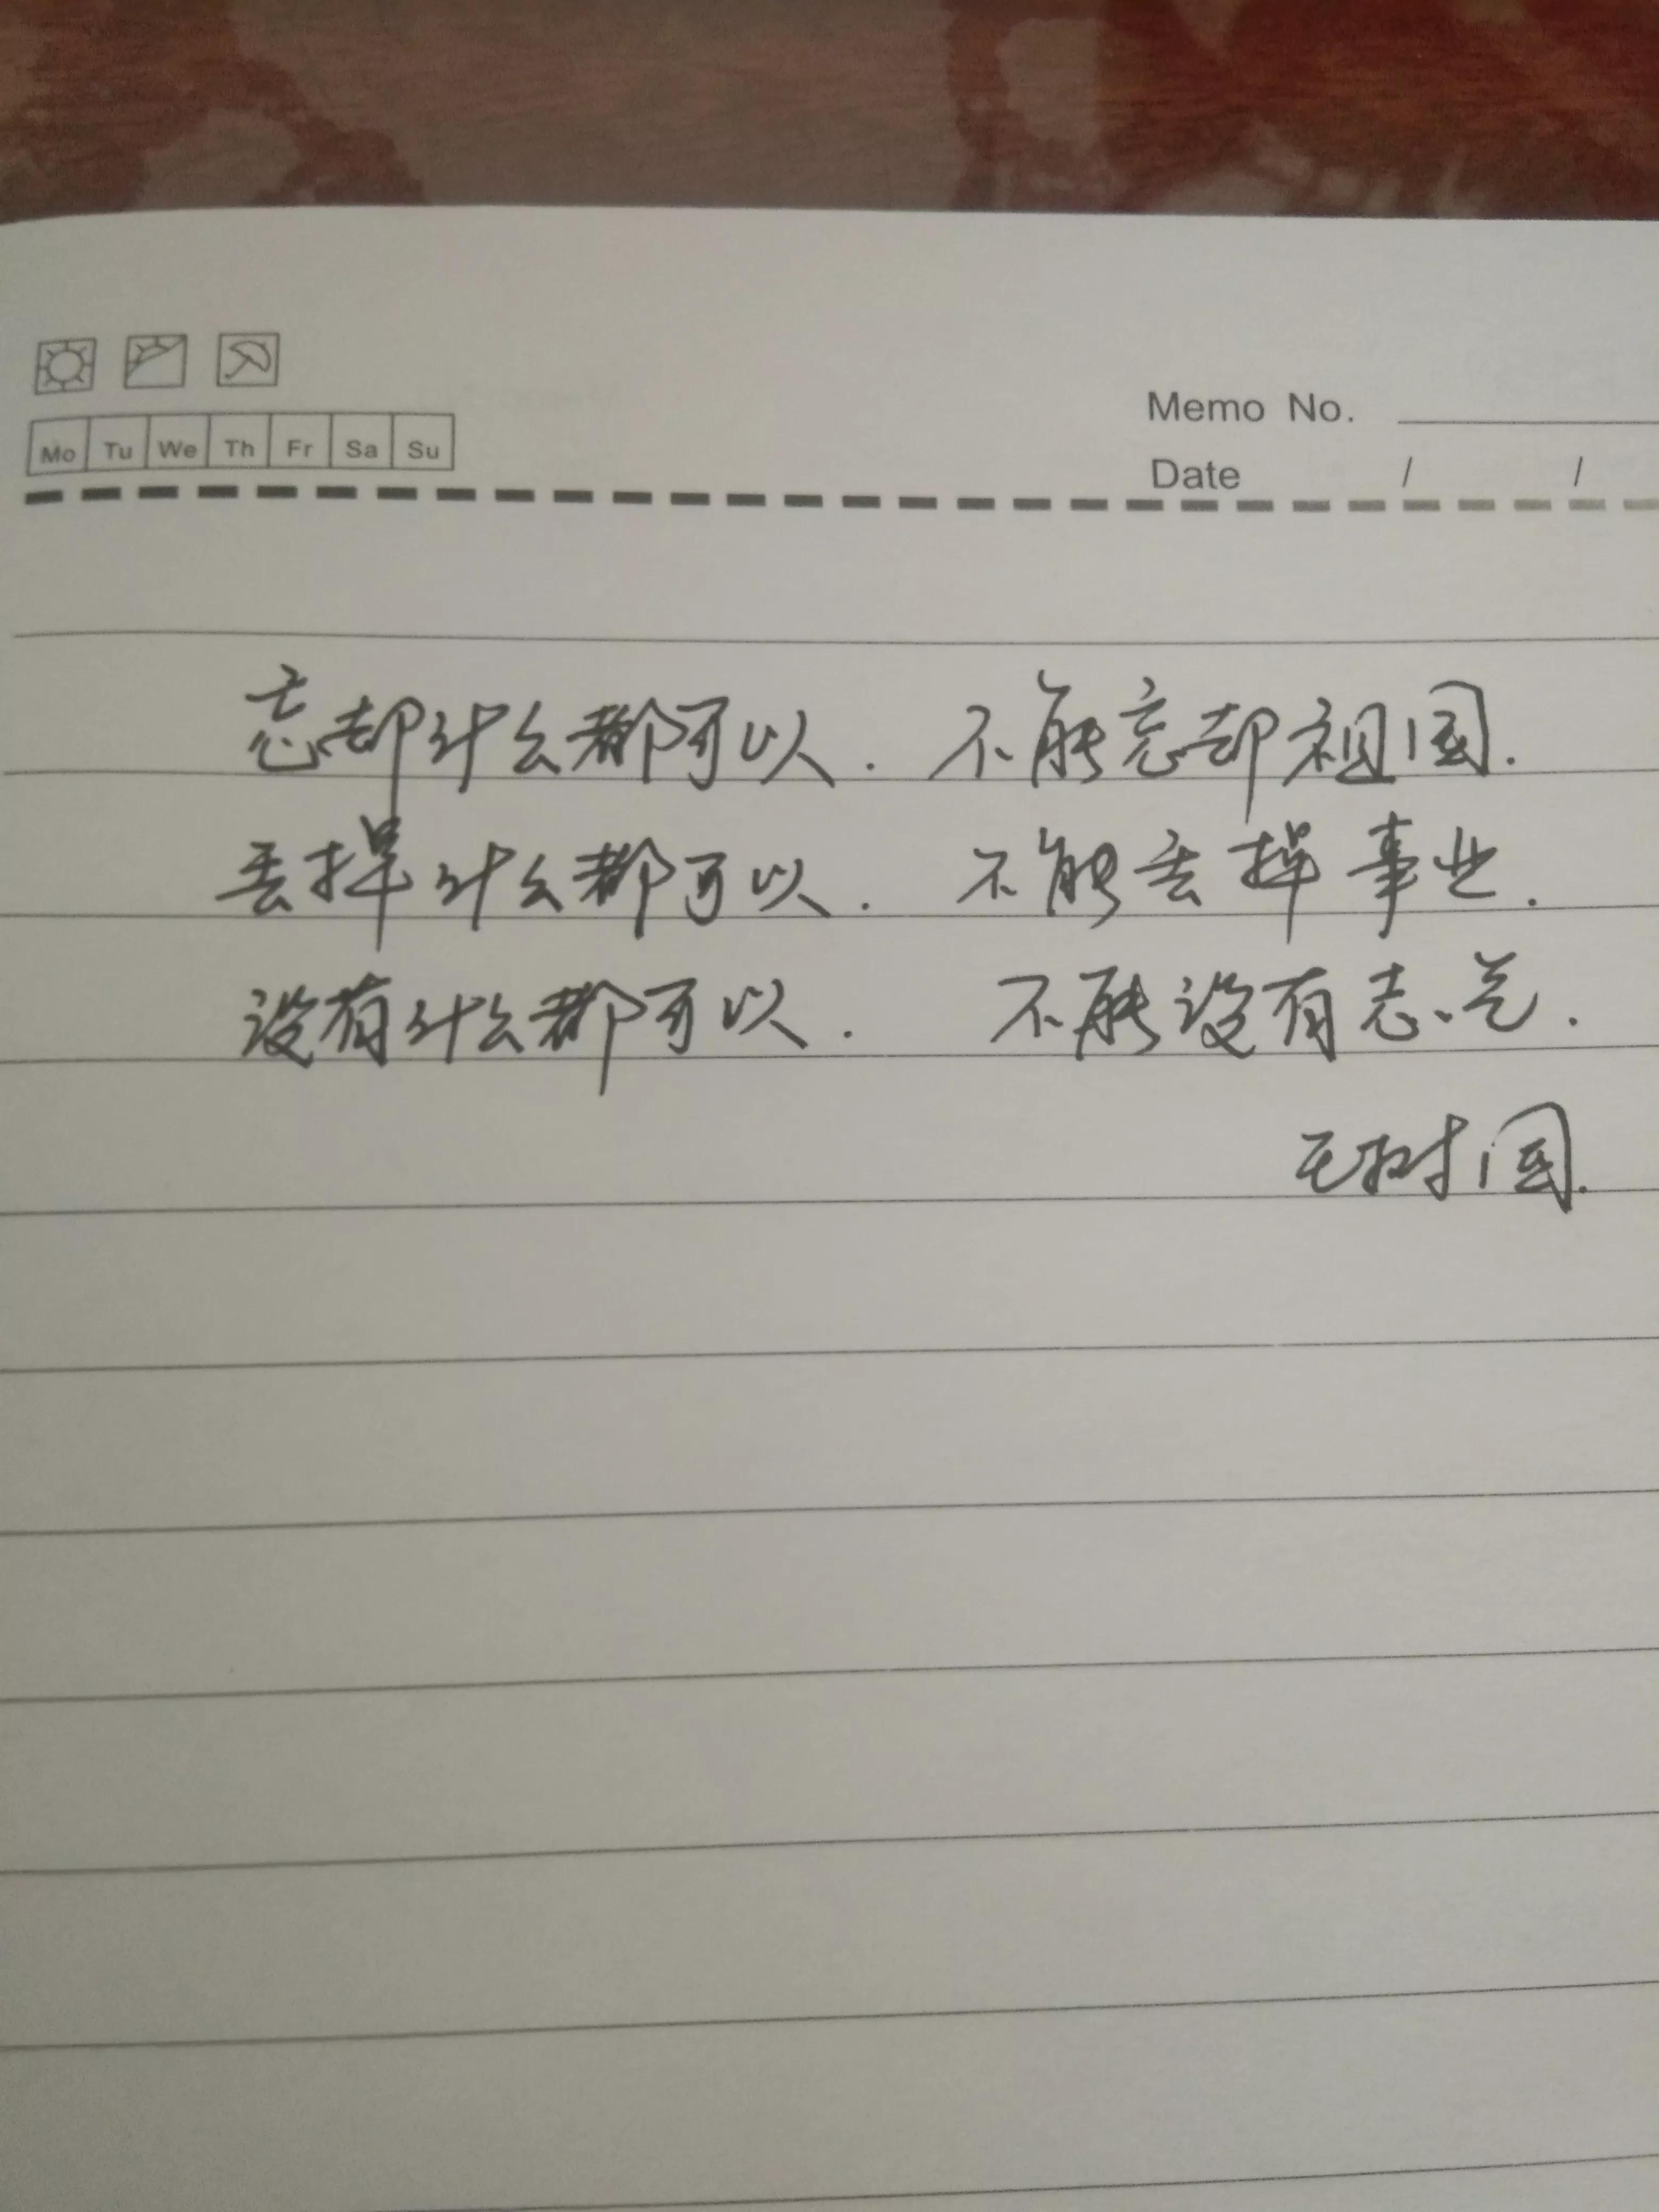 Mo Tu We Th Fr Sa Su
Memo No.
Date / /
忘却什么都可以. 不能忘却祖国.
丢掉什么都可以. 不能丢掉事业.
没有什么都可以. 不能没有志气.
王树国.